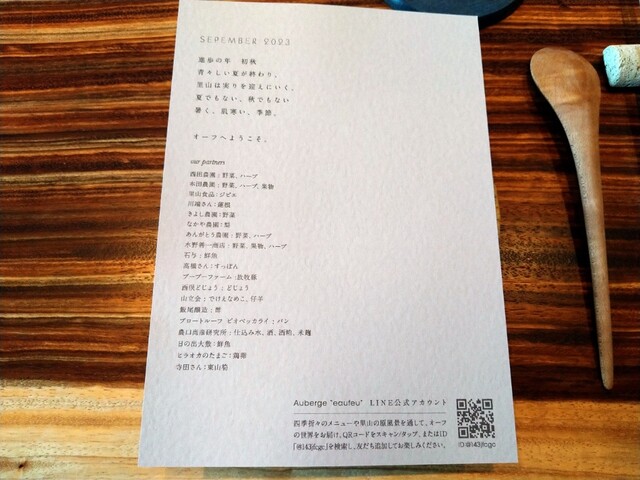 SEPEMBER 2023
進歩の年　初秋
青々しい夏が終わり、
里山は実りを迎えにいく。
夏でもない、秋でもない
暑く、肌寒い、季節。
オーフへようこそ。
our partners
西田農園：野菜、ハーブ
本田農園：野菜、ハーブ、果物
里山食品：ジビエ
川端さん：蓮根
きよし農園：野菜
なかや農園：梨
あんがとう農園：野菜、ハーブ
水野善一商店：野菜、果物、ハーブ
石り：鮮魚
高橋さん：すっぽん
ブーブーファーム：放牧豚
西俣どじょう：どじょう
山立会：でけえなめこ、仔羊
飯尾醸造：酢
ブロートルーフ ビオベッカライ：パン
農口尚彦研究所：仕込み水、酒、酒粕、米麹
日の出大敷：鮮魚
ヒラオカのたまご：鶏卵
寺田さん：東山梨
Auberge "eaufeu" LINE公式アカウント
四季折々のメニューや里山の原風景を通して、オーフ
の世界をお届け。QRコードをスキャン/タップ、またはID
「@143jfcgc」を検索し、友だち追加してお楽しみください。
ID:@143jfcgc